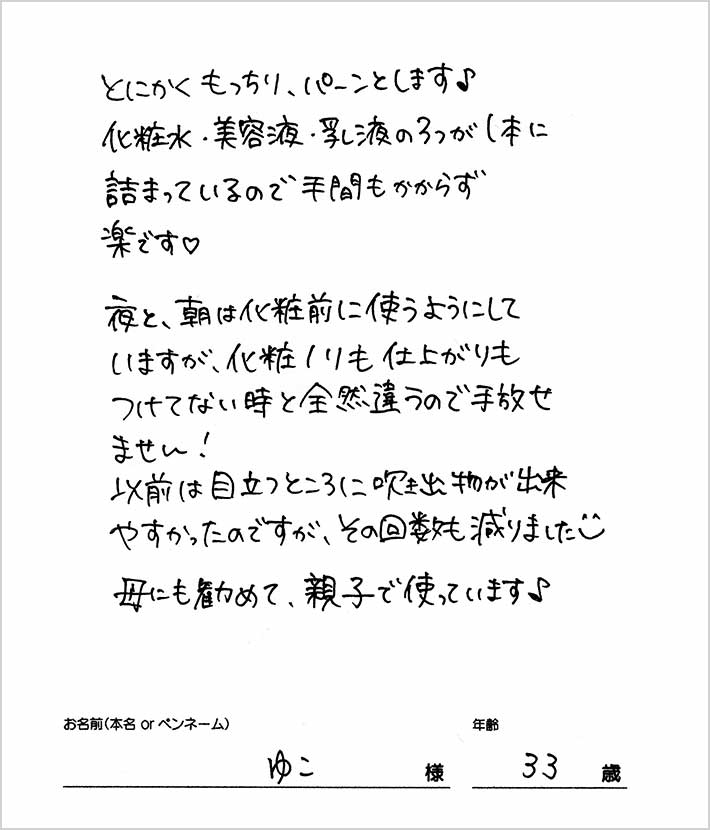 とにかくもっちり、パーンとします♪
化粧水・美容液・乳液の3つが1本に
詰まっているので手間もかからず
楽です♡
夜と、朝は化粧前に使うようにして
いますが、化粧ノリも仕上がりも
つけてない時と全然違うので手放せ
ません!
以前は目立つところに吹き出物が出来
やすかったのですが、その回数も減りました
母にも勧めて、親子で使っています♪
お名前(本名 or ペンネーム) 年齢
ゆこ 様 33 歳